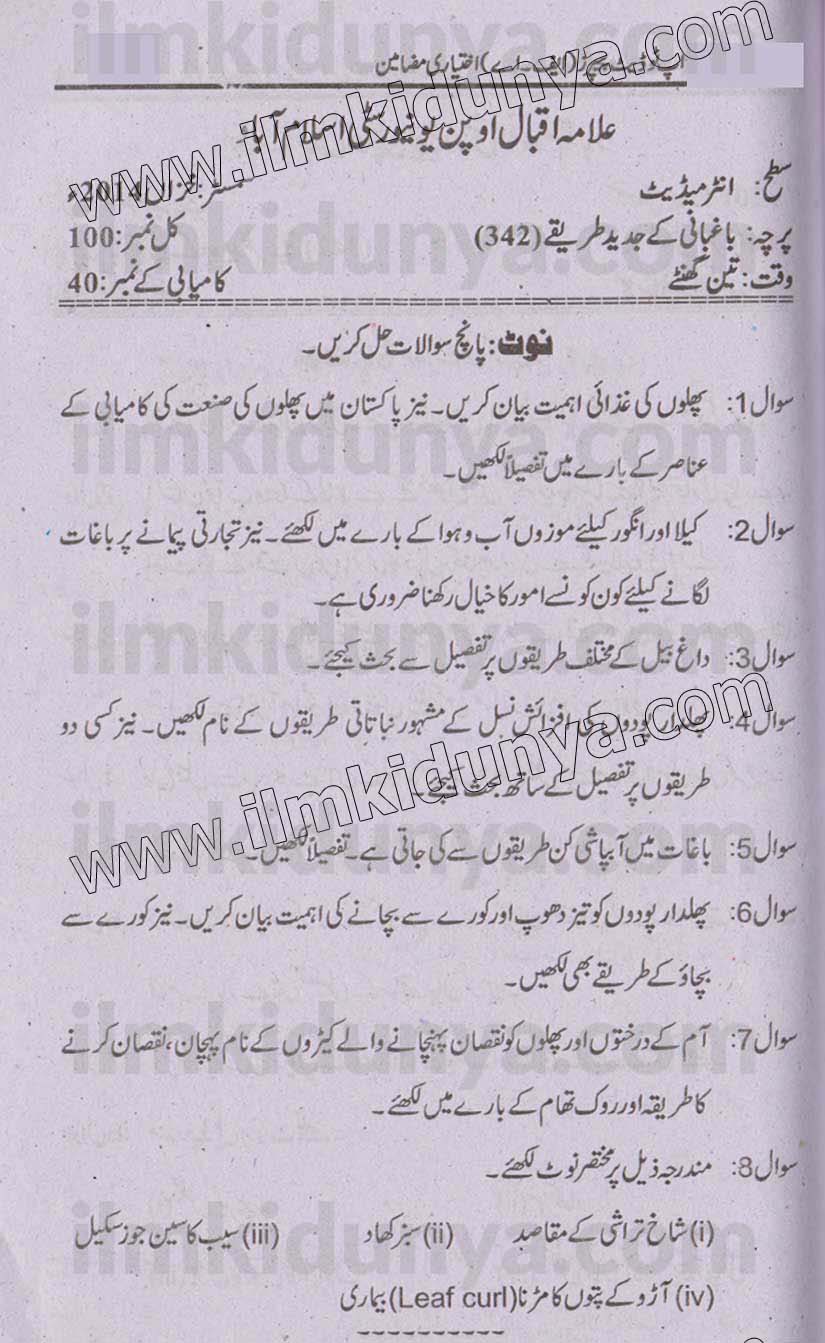 اپ ٹو ڈیٹ پیپرز (ایف۔اے) اختیاری مضامین
علامہ اقبال اوپن یونیورسٹی اسلام آباد
سطح: انٹرمیڈیٹ سمسٹر: خزاں 2014ء
پرچہ: باغبانی کے جدید طریقے (342) کل نمبر: 100
وقت: تین گھنٹے کامیابی کے نمبر: 40
نوٹ: پانچ سوالات حل کریں۔
سوال 1: پھلوں کی غذائی اہمیت بیان کریں۔ نیز پاکستان میں پھلوں کی صنعت کی کامیابی کے
عناصر کے بارے میں تفصیلاً لکھیں۔
سوال 2: کیلا اور انگور کیلئے موزوں آب و ہوا کے بارے میں لکھئے۔ نیز تجارتی پیمانے پر باغات
لگانے کیلئے کون کونسے امور کا خیال رکھنا ضروری ہے۔
سوال 3: داغ بیل کے مختلف طریقوں پر تفصیل سے بحث کیجئے۔
سوال 4: پھلدار پودوں کی افزائش نسل کے مشہور نباتاتی طریقوں کے نام لکھیں۔ نیز کسی دو
طریقوں پر تفصیل کے ساتھ بحث کیجئے۔
سوال 5: باغات میں آبپاشی کن طریقوں سے کی جاتی ہے۔ تفصیلاً لکھیں۔
سوال 6: پھلدار پودوں کو تیز دھوپ اور کورے سے بچانے کی اہمیت بیان کریں۔ نیز کورے سے
بچاؤ کے طریقے بھی لکھیں۔
سوال 7: آم کے درختوں اور پھلوں کو نقصان پہنچانے والے کیڑوں کے نام پہچان، نقصان کرنے
کا طریقہ اور روک تھام کے بارے میں لکھئے۔
سوال 8: مندرجہ ذیل پر مختصر نوٹ لکھئے۔
(i) شاخ تراشی کے مقاصد (ii) سبز کھاد (iii) سیب کا سین جوز سکیل
(iv) آڑو کے پتوں کا مڑنا (Leaf curl) بیماری
www.ilmkidunya.com
www.ilmkidunya.com
ilmkidunya.com
ilmkidunya.com
ilmkidunya.com
ilmkidunya.com
ilmkidunya.com
ilmkidunya.com
ilmkidunya.com